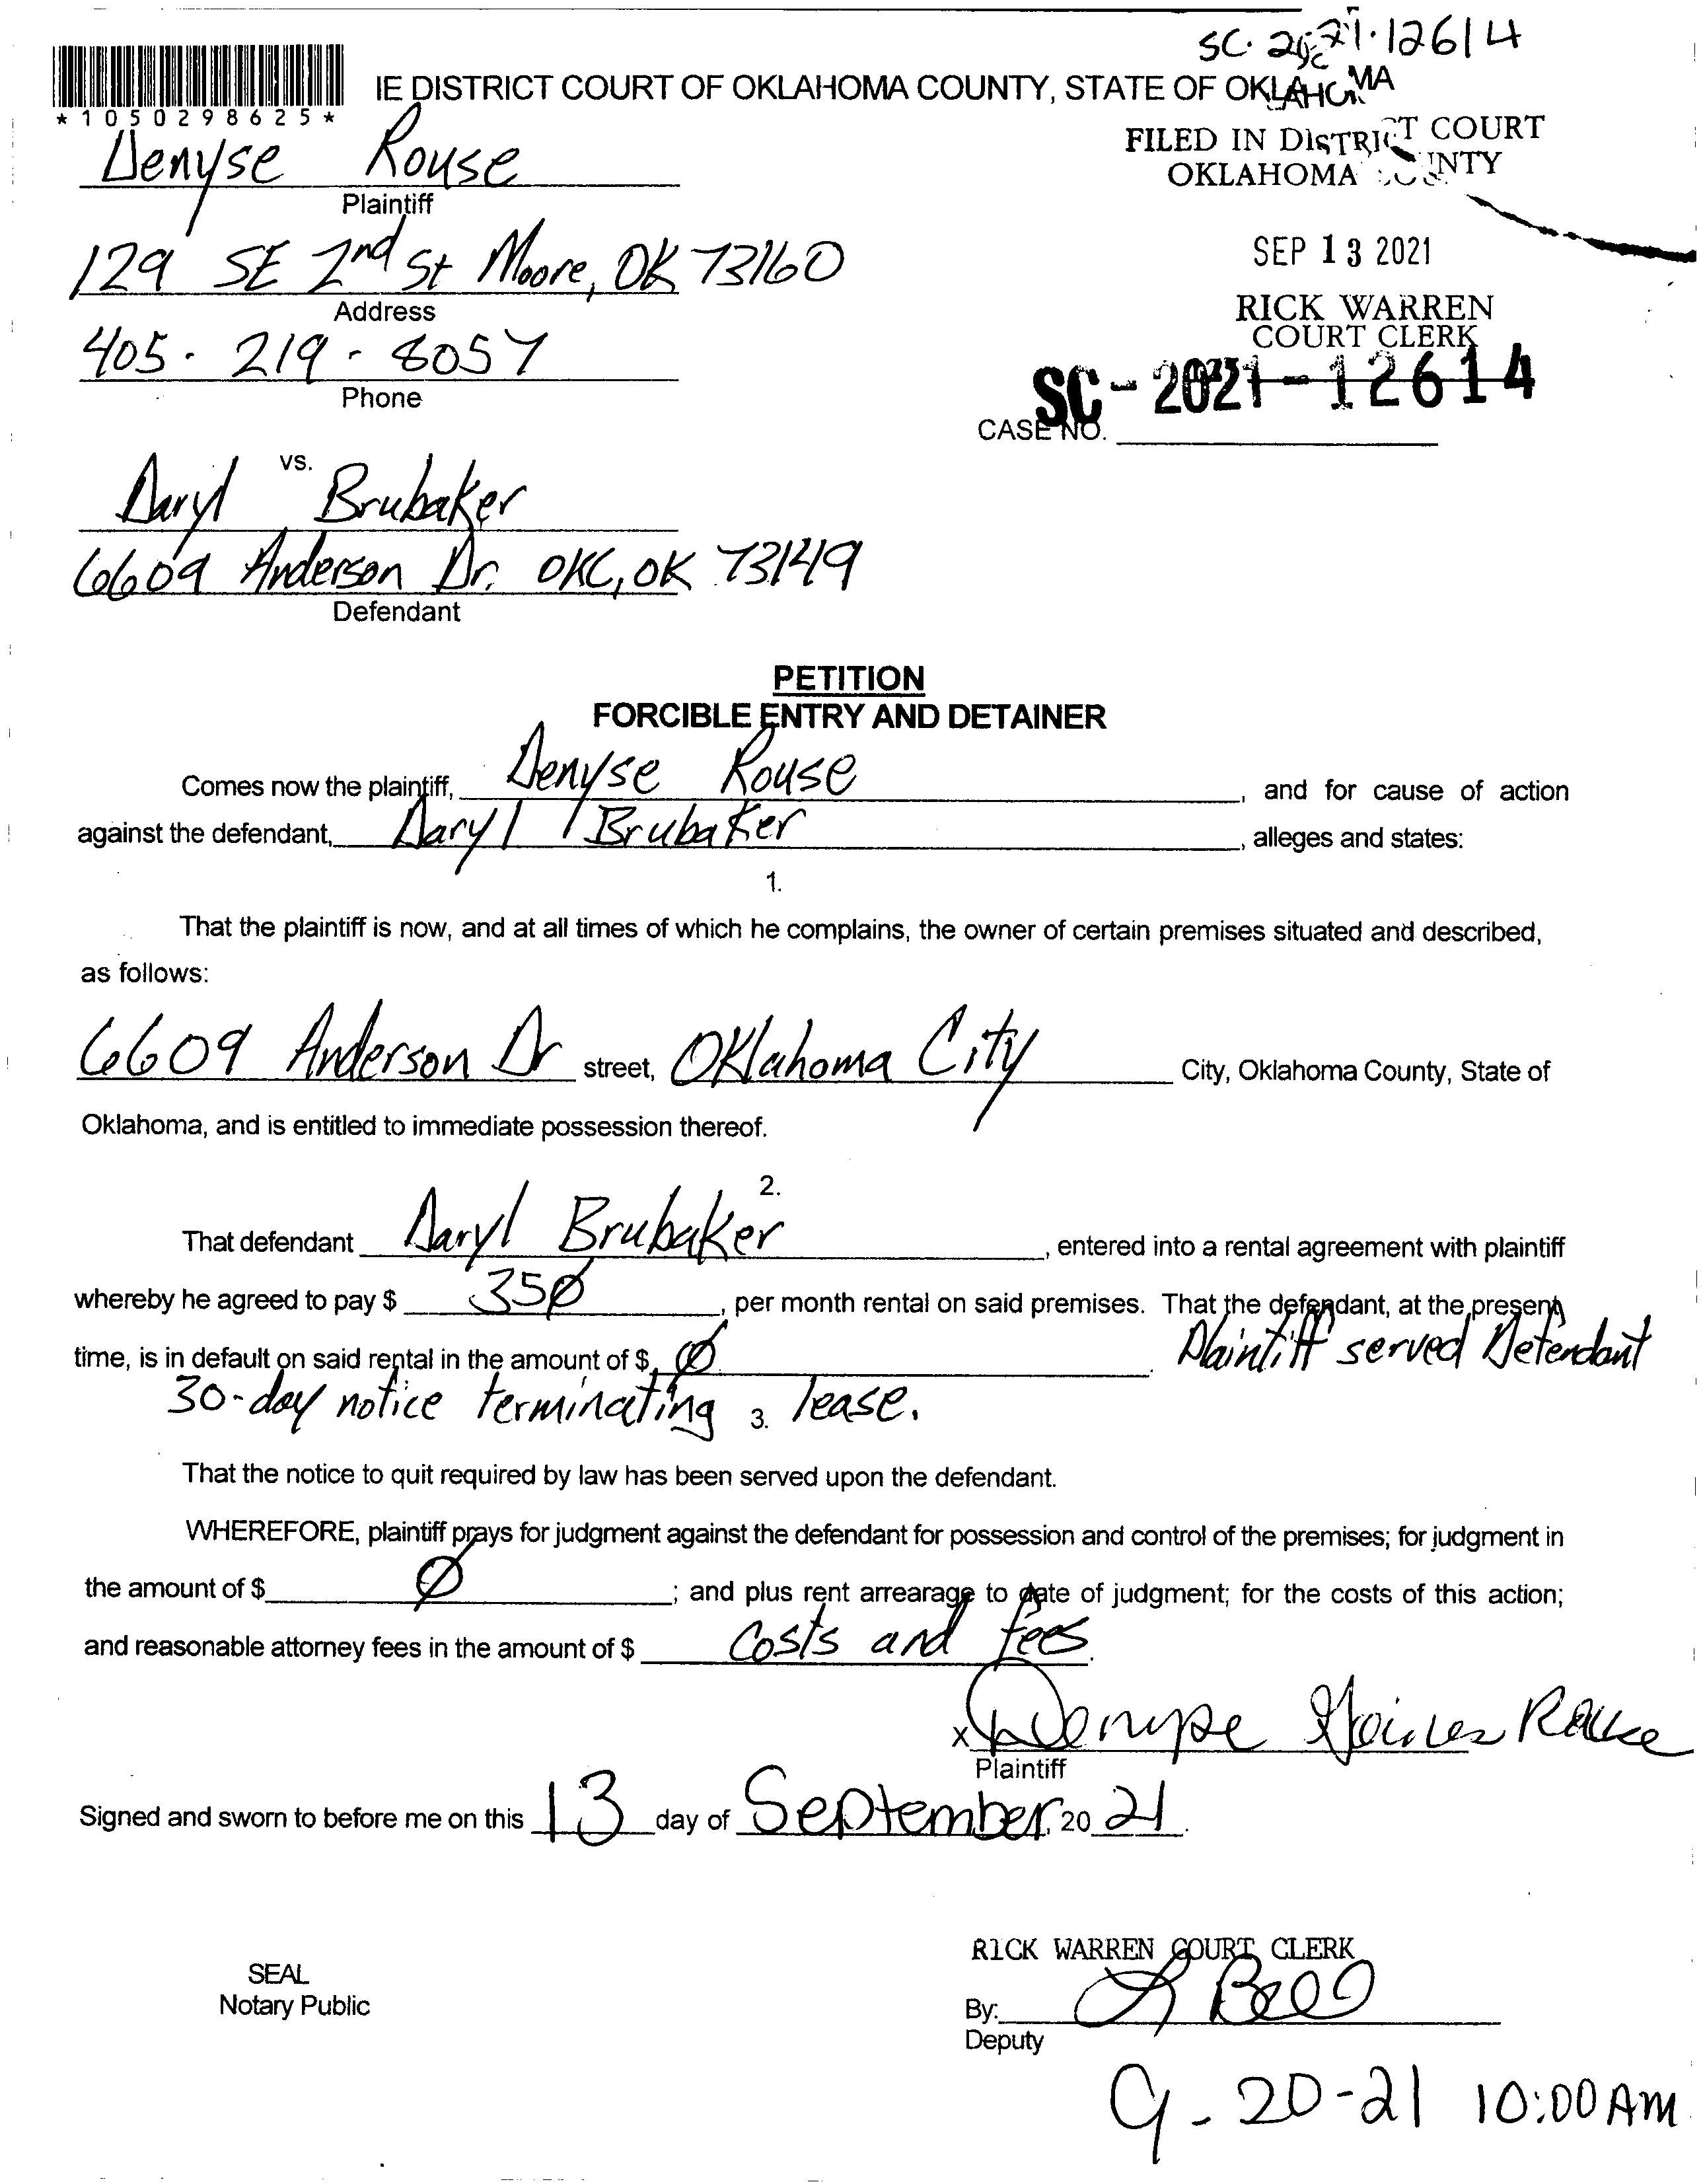 SC-2021-12614
*1050298625*
IE DISTRICT COURT OF OKLAHOMA COUNTY, STATE OF OKLAHOMA
FILED IN DISTRICT COURT
OKLAHOMA COUNTY
Denyse Rouse
Plaintiff
129 SE 2nd St Moore, OK 73160
Address
SEP 13 2021
RICK WARREN
COURT CLERK
405-219-8057
Phone
SC-2021-12614
CASE NO.
vs.
Daryl Brubaker
6609 Anderson Dr. OKC, OK 73149
Defendant
PETITION
FORCIBLE ENTRY AND DETAINER
Comes now the plaintiff, Denyse Rouse, and for cause of action
against the defendant, Daryl Brubaker, alleges and states:
1.
That the plaintiff is now, and at all times of which he complains, the owner of certain premises situated and described,
as follows:
6609 Anderson Dr street, Oklahoma City City, Oklahoma County, State of
Oklahoma, and is entitled to immediate possession thereof.
2.
That defendant Daryl Brubaker, entered into a rental agreement with plaintiff
whereby he agreed to pay $ 350, per month rental on said premises. That the defendant, at the present
time, is in default on said rental in the amount of $ 0. Plaintiff served Defendant
30-day notice terminating lease.
3.
That the notice to quit required by law has been served upon the defendant.
WHEREFORE, plaintiff prays for judgment against the defendant for possession and control of the premises; for judgment in
the amount of $ 0; and plus rent arrearage to date of judgment; for the costs of this action;
and reasonable attorney fees in the amount of $ Costs and fees.
x Denyse Rouse
Plaintiff
Signed and sworn to before me on this 13 day of September, 20 21.
RICK WARREN COURT CLERK
SEAL
Notary Public
By: L Bell
Deputy
9-20-21 10:00 AM